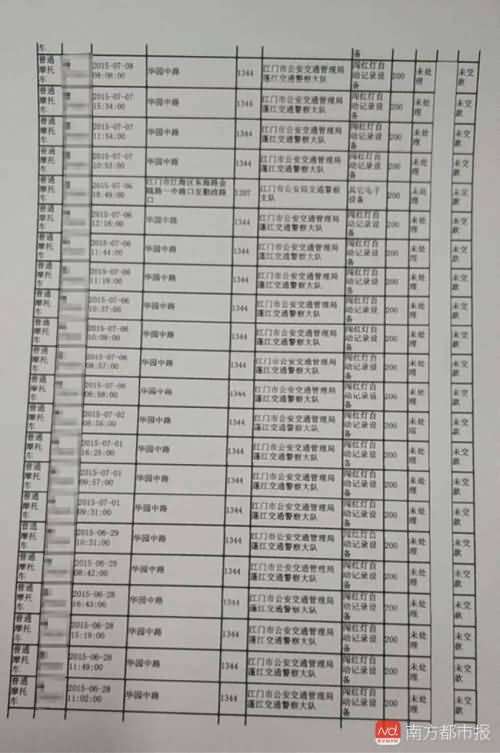 车 备
普通摩托车 2015-07-08 08:08:00 华园中路 1344 江门市公安交通管理局蓬江交通警察大队 闯红灯自动记录设备 200 未处理 未交款
普通摩托车 2015-07-07 15:34:00 华园中路 1344 江门市公安交通管理局蓬江交通警察大队 闯红灯自动记录设备 200 未处理 未交款
普通摩托车 2015-07-07 11:54:00 华园中路 1344 江门市公安交通管理局蓬江交通警察大队 闯红灯自动记录设备 200 未处理 未交款
普通摩托车 2015-07-07 华园中路 1344 江门市公安交通管理局蓬江交通警察大队 闯红灯自动记录设备 200 未处理 未交款
普通摩托车 2015-07-06 18:49:00 江门市江海区东海路金瓯路 路口 江门市公安局交通警察支队 其它电子设备 200 未处理 未交款
普通摩托车 2015-07-06 12:16:00 华园中路 1344 江门市公安交通管理局蓬江交通警察大队 闯红灯自动记录设备 200 未处理 未交款
普通摩托车 2015-07-06 11:44:00 华园中路 1344 江门市公安交通管理局蓬江交通警察大队 闯红灯自动记录设备 200 未处理 未交款
普通摩托车 2015-07-06 11:19:00 华园中路 1344 江门市公安交通管理局蓬江交通警察大队 闯红灯自动记录设备 200 未处理 未交款
普通摩托车 2015-07-06 10:37:00 华园中路 1344 江门市公安交通管理局蓬江交通警察大队 闯红灯自动记录设备 200 未处理 未交款
普通摩托车 2015-07-06 华园中路 1344 江门市公安交通管理局蓬江交通警察大队 闯红灯自动记录设备 200 未处理 未交款
普通摩托车 2015-07-06 华园中路 1344 江门市公安交通管理局蓬江交通警察大队 闯红灯自动记录设备 200 未处理 未交款
普通摩托车 2015-07-06 华园中路 1344 江门市公安交通管理局蓬江交通警察大队 闯红灯自动记录设备 200 未处理 未交款
普通摩托车 2015-07-02 华园中路 1344 江门市公安交通管理局蓬江交通警察大队 闯红灯自动记录设备 200 未处理 未交款
普通摩托车 2015-07-01 16:25:00 华园中路 1344 江门市公安交通管理局蓬江交通警察大队 闯红灯自动记录设备 200 未处理 未交款
普通摩托车 2015-07-01 09:57:00 华园中路 1344 江门市公安交通管理局蓬江交通警察大队 闯红灯自动记录设备 200 未处理 未交款
普通摩托车 2015-07-01 09:31:00 华园中路 1344 江门市公安交通管理局蓬江交通警察大队 闯红灯自动记录设备 200 未处理 未交款
普通摩托车 2015-06-29 10:31:00 华园中路 1344 江门市公安交通管理局蓬江交通警察大队 闯红灯自动记录设备 200 未处理 未交款
普通摩托车 08:42:00 华园中路 1344 江门市公安交通管理局蓬江交通警察大队 闯红灯自动记录设备 200 未处理 未交款
普通摩托车 2015-06-28 16:43:00 华园中路 1344 江门市公安交通管理局蓬江交通警察大队 闯红灯自动记录设备 200 未处理 未交款
普通摩托车 2015-06-28 15:19:00 华园中路 1344 江门市公安交通管理局蓬江交通警察大队 闯红灯自动记录设备 200 未处理 未交款
普通摩托车 2015-06-28 11:49:00 华园中路 1344 江门市公安交通管理局蓬江交通警察大队 闯红灯自动记录设备 200 未处理 未交款
普通摩托车 2015-06-28 11:02:00 华园中路 1344 江门市公安交通管理局蓬江交通警察大队 闯红灯自动记录设备 200 未处理 未交款
南方都市报